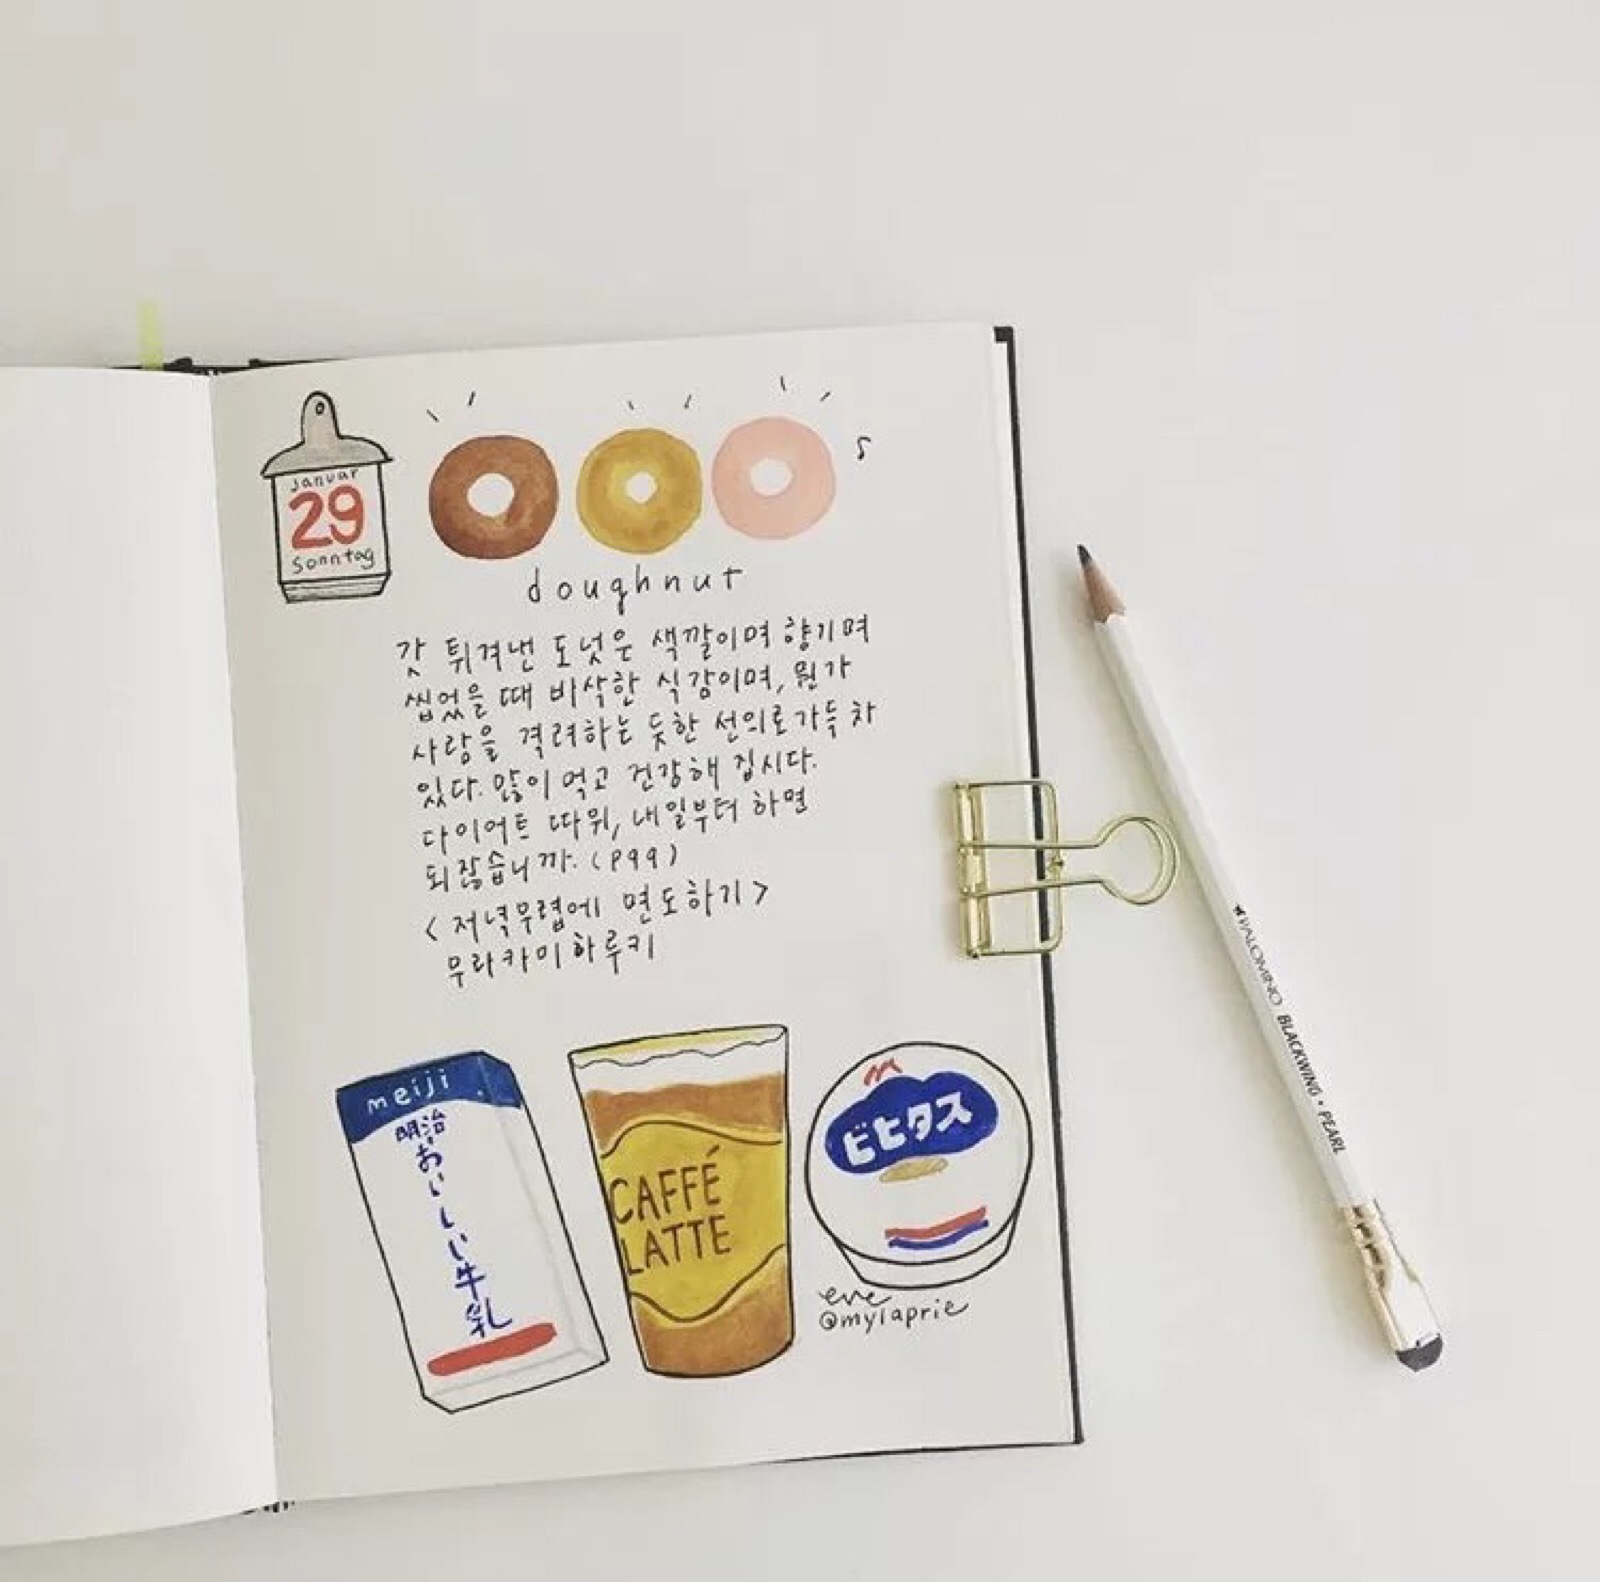 Januar
29
Sonntag
s
doughnut
갓 튀겨낸 도넛은 색깔이며 향기며
씹었을 때 바삭한 식감이며, 뭔가
사람을 격려하는 듯한 선의로 가득 차
있다. 많이 먹고 건강해 집시다.
다이어트 따위, 내일부터 하면
되잖습니까. (p99)
<저녁무렵에 면도하기>
무라카미 하루키
meiji
明治
おいしい牛乳
CAFFÉ
LATTE
ビヒダス
eve
@mylaprie
PALOMINO BLACKWING • PEARL